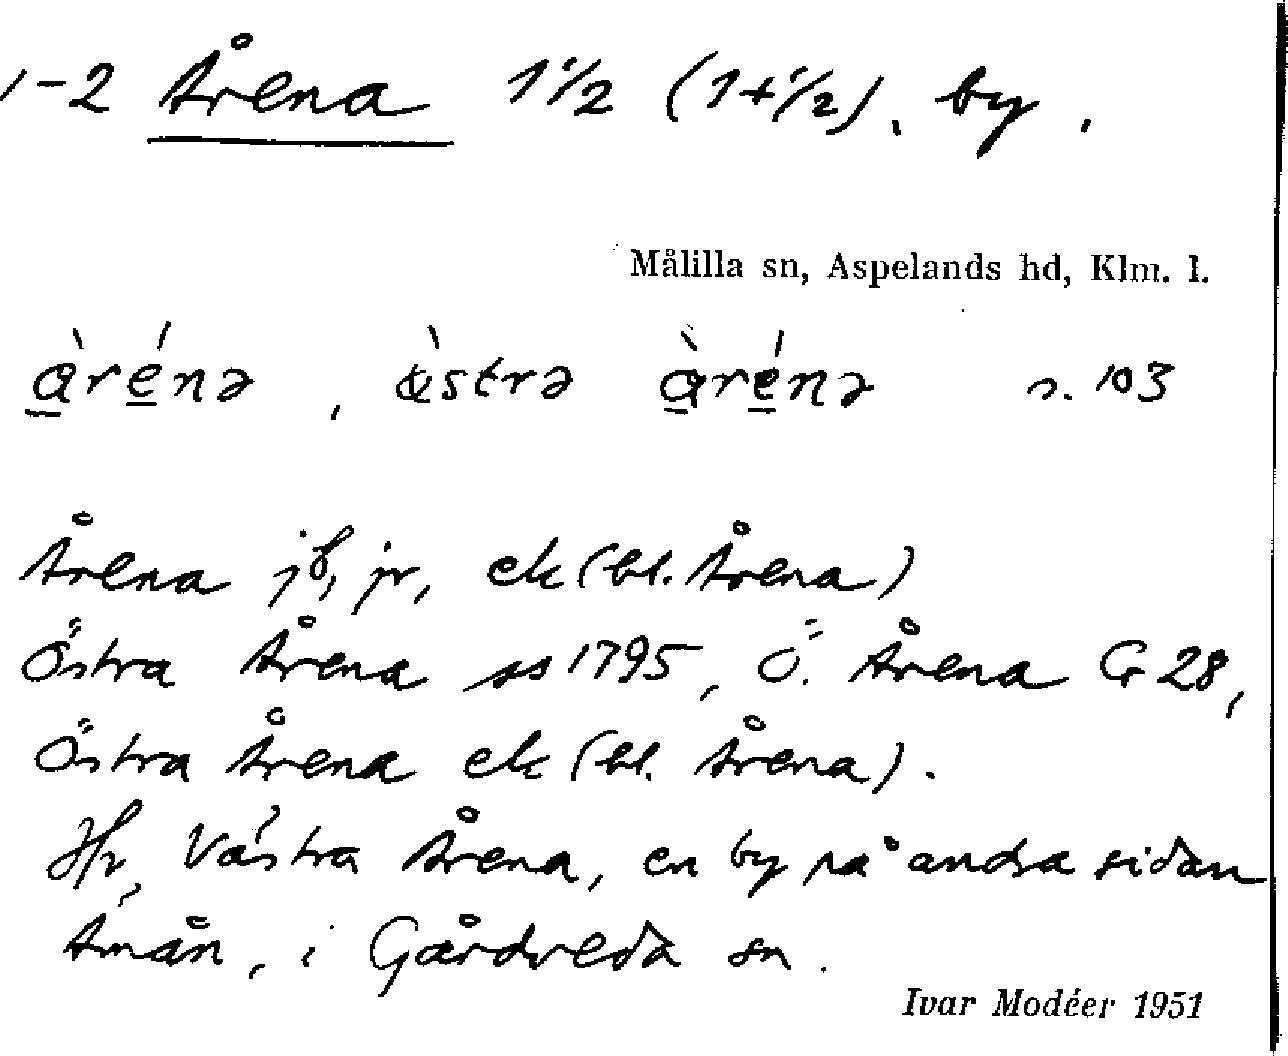 1-2 Årena 1 1/2 (1+1/2), by.
Målilla sn, Aspelands hd, Klm. l.
à̲ré̲nə, ö̀strə à̲ré̲nə s. 103
Årena jb, jr, ek (bl. Årena)
Östra Årena ss 1795, Ö. Årena G 28,
Östra Årena ek (bl. Årena).
Jfr Västra Årena, en by på andra sidan
Åmån, i Gårdveda sn.
Ivar Modéer 1951